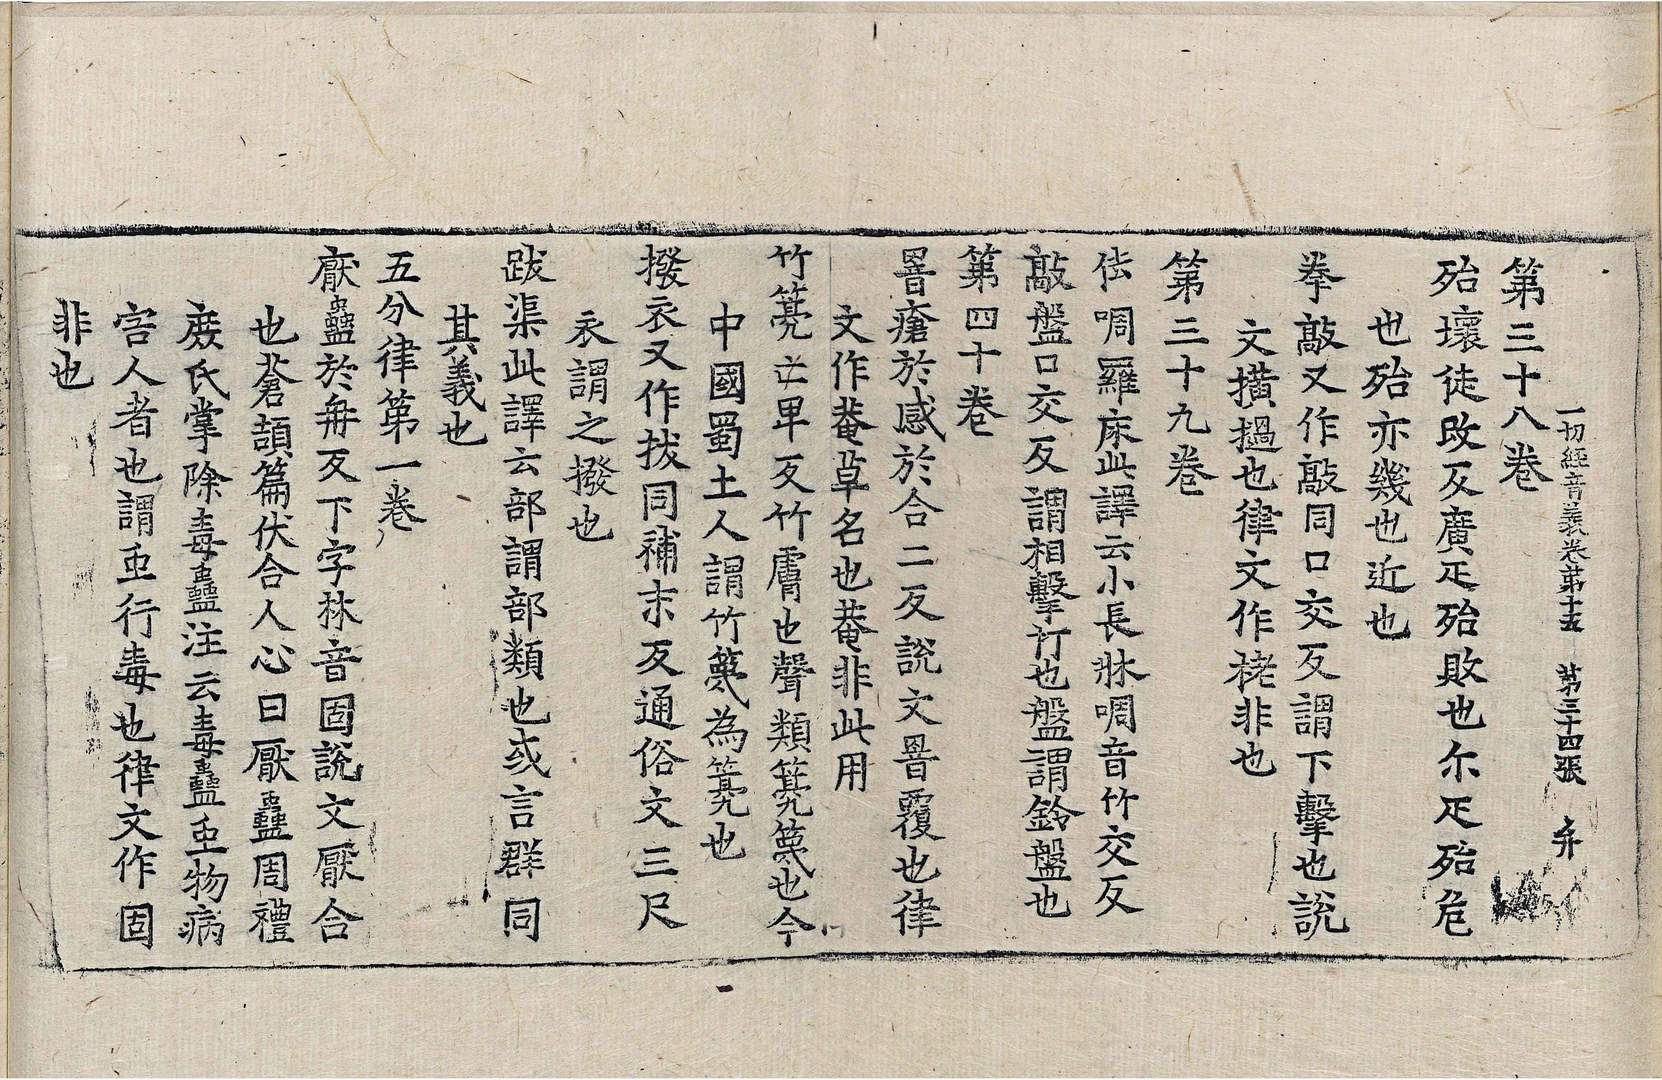 一切經音義卷第十五 第三十四張 弁
第三十八卷
殆壞徒改反廣疋殆敗也尒疋殆危
也殆亦幾也近也
第三十九卷
拳敲又作敲同口交反謂下擊也說
文撗撾也律文作栳非也
佉啁羅床此譯云小長牀啁音竹交反
敲盤口交反謂相擊打也盤謂鈴盤也
第四十卷
罯瘡於感於合二反說文罯覆也律
文作菴草名也菴非此用
竹䈍亡卑反竹膚也聲類䈍篾也今
中國蜀土人謂竹篾為䈍也
撥衣又作拔同補末反通俗文三尺
衣謂之撥也
跋渠此譯云部謂部類也或言群同
其義也
五分律第一卷
厭蠱於冉反下字林音固說文厭合
也蒼頡篇伏合人心曰厭蠱周禮
庻氏掌除毒蠱注云毒蠱虫物病
害人者也謂虫行毒也律文作固
非也